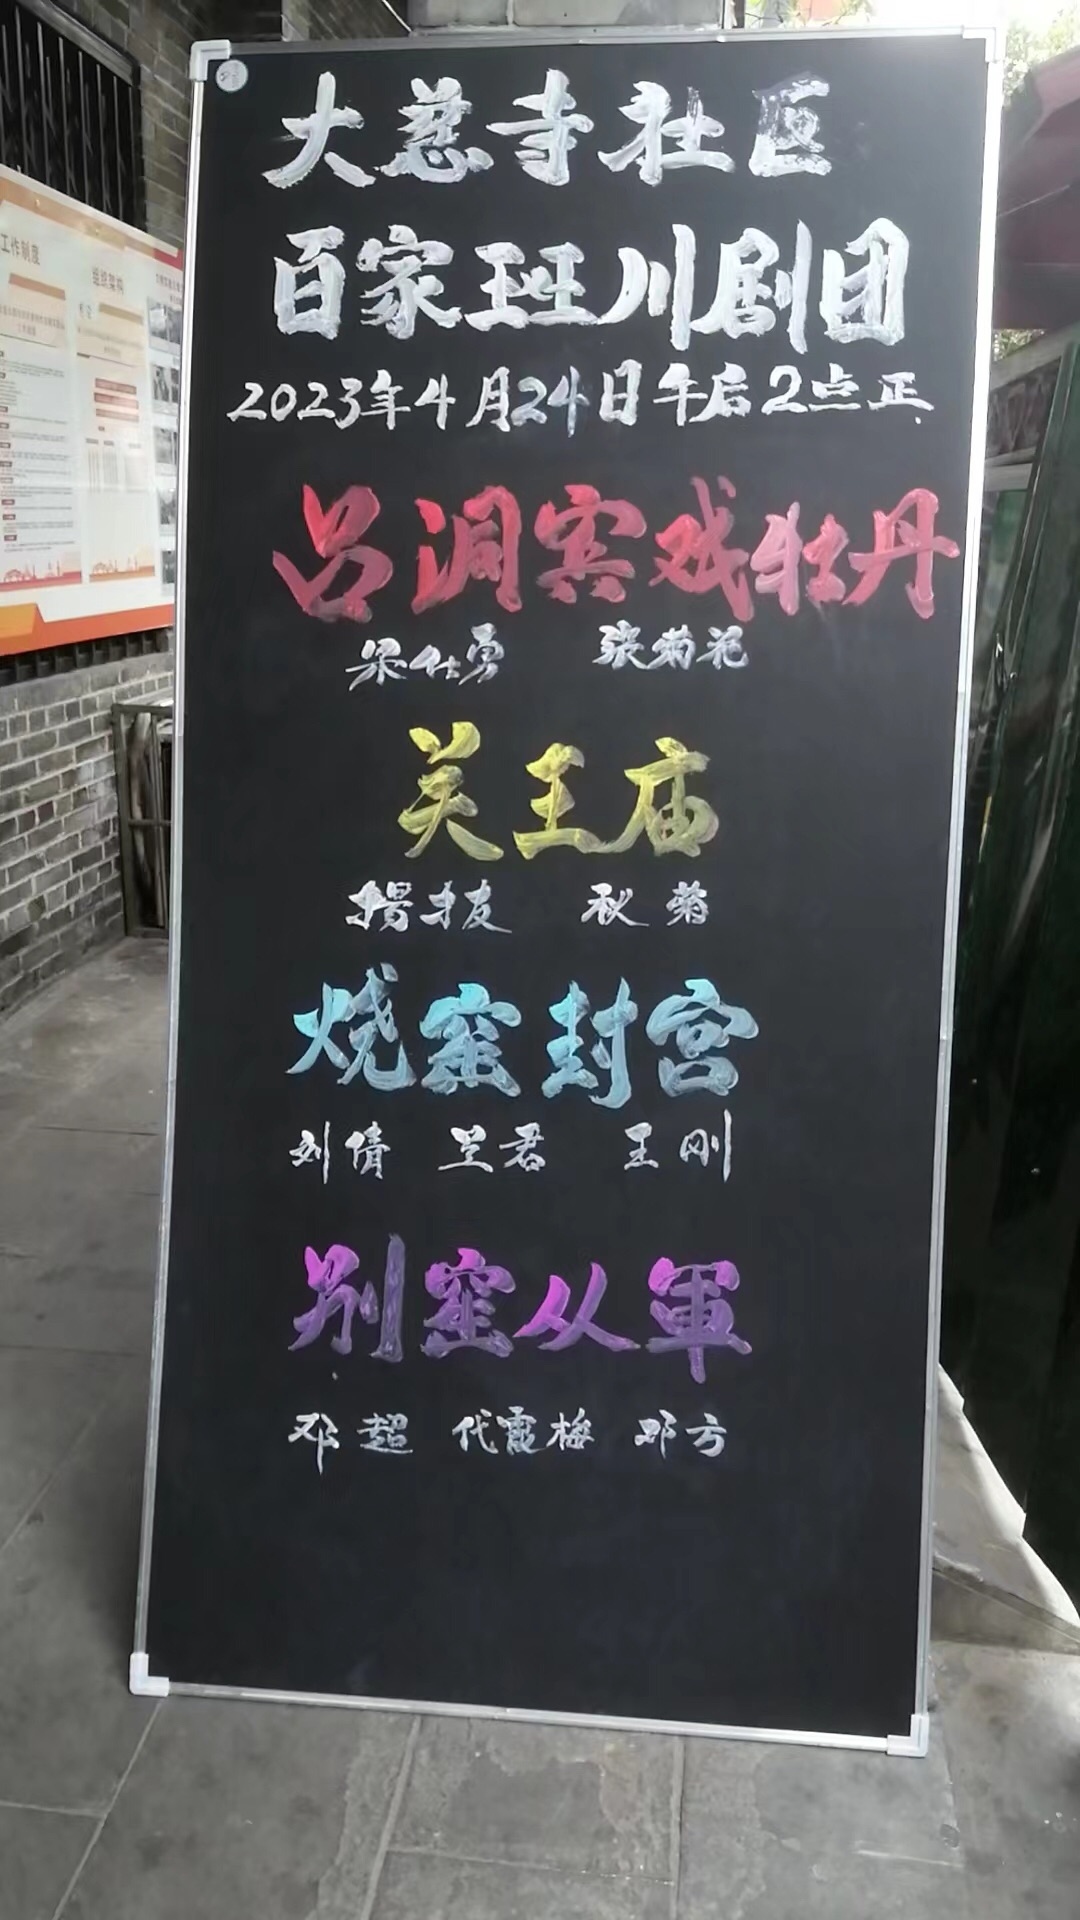 大慈寺社区
百家班川剧团
2023年4月24日午后2点正
吕洞宾戏牡丹
梁仕勇 张菊花
关王庙
杨技友 秋菊
烧窑封宫
刘倩 兰君 王刚
别窑从軍
邓超 代霞梅 邓方
工作制度
组织架构